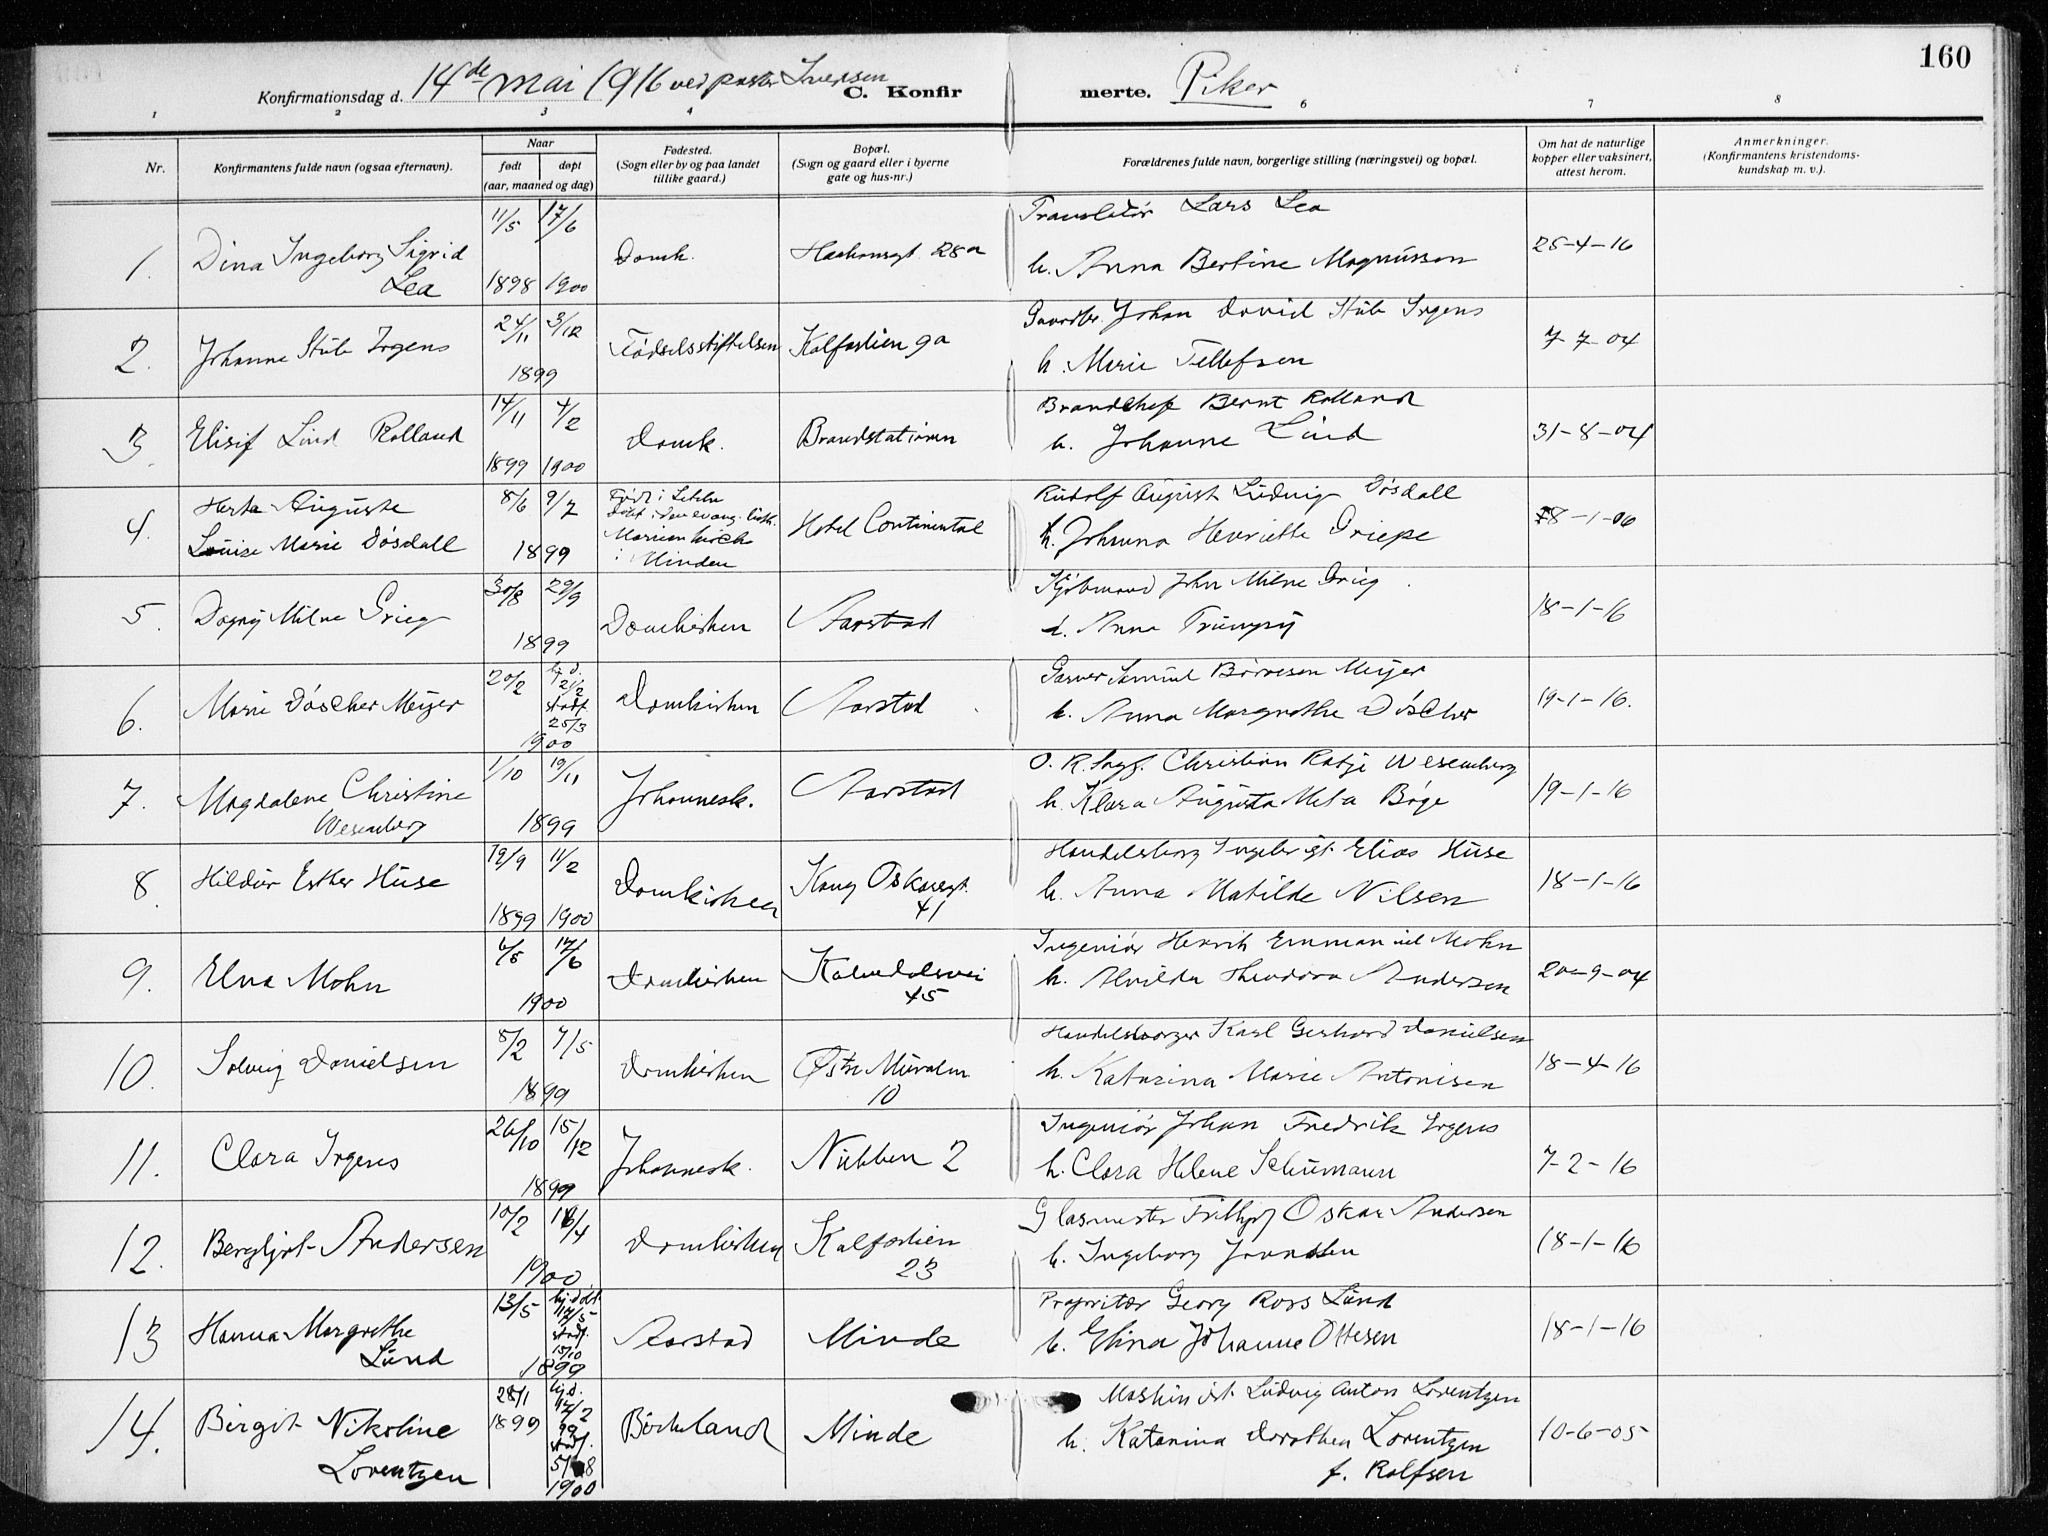 160
Konfirmationsdag d. 14de mai 1916 ved pastor Iversen C. Konfirmerte. Piker
1 2 3 4 6 7 8
Nr. Konfirmantens fulde navn (ogsaa efternavn). Naar født døpt (aar, maaned og dag) Fødested. (Sogn eller by og paa landet tillike gaard.) Bopæl. (Sogn og gaard eller i byerne gate og hus-nr.) Forældrenes fulde navn, borgerlige stilling (næringsvei) og bopæl. Om hat de naturlige kopper eller vaksinert, attest herom. Anmerkninger. (Konfirmantens kristendoms-kundskap m. v.).
1. Dina Ingeborg Sigrid Lea 11/5 1898 17/6 1900 Domk. Haakonsgt. 28a Translatør Lars Lea h. Anna Bertine Magnussen 25-4-16
2. Johanne Stub Irgens 24/11 3/12 1899 Fødselsstiftelsen Kalfarlien 9a Gaardbr. Johan David Stub Irgens h. Marie Tellefsen 7-7-04
3. Elisif Lind Rolland 14/11 1899 4/2 1900 Domk. Brandstationen Brandchef Bernt Rolland h. Johanne Lind 31-8-04
4. Herta Auguste Louise Marie Døsdall 8/6 9/7 1899 Født i døbt i den evang. luth. Marienkirche i Minden Hotel Continental Rudolf August Ludvig Døsdall h. Johanna Henriette Griepe 18-1-06
5. Dagny Milne Grieg 30/8 29/9 1899 Domkirken Aarstad Kjøbmand John Milne Grieg h. Anna Trumpy 18-1-16
6. Marie Döscher Meyer 20/2 hj.d. 21/2 stadf. 25/3 1900 Domkirken Aarstad Garver Samuel Børresen Meyer h. Anna Margrethe Döscher 19-1-16.
7. Magdalene Christine Wesenberg 1/10 19/11 1899 Johannesk. Aarstad O. R. Sagf. Christian Ratje Wesenberg h. Klara Augusta Meta Bøge 19-1-16
8. Hildur Esther Huse 12/9 1899 11/2 1900 Domkirken Kong Oskarsgt. 41 Handelsborg Ingebrigt Elias Huse h. Anna Matilde Nilsen 18-1-16
9. Elna Mohn 6/5 17/6 1900 Domkirken Kalvedalsvei 45 Ingeniør Henrik Emmanuel Mohn h. Alvilda Theodora Andersen 20-9-04
10. Solveig Danielsen 5/2 7/5 1899 Domkirken Østre Muralm 10 Handelsborger Karl Gerhard Danielsen h. Katarina Marie Antonisen 18-4-16
11. Clara Irgens 26/10 15/12 1899 Johannesk. Nubben 2 Ingeniør Johan Fredrik Irgens h. Clara Helene Schumann 7-2-16
12. Bergljot Andersen 10/2 16/4 1900 Domkirken Kalfarlien 23 Glasmester Frithjof Oskar Andersen h. Ingeborg 18-1-16
13 Hanna Margrethe Lund 13/5 hj.døbt 17/5 stadf. 15/10 1899 Aarstad Minde Proprietær Georg Ross Lund h. Elina Johanne Ottesen 18-1-16
14. Birgit Nikoline Lorentzen 28/1 1899 hj.d. 17/2 99 stadf. 5/8 1900 Birkeland Minde Maskinist Ludvig Anton Lorentzen h. Katarina Dorothea Lorentzen f. Rolfsen 10-6-05